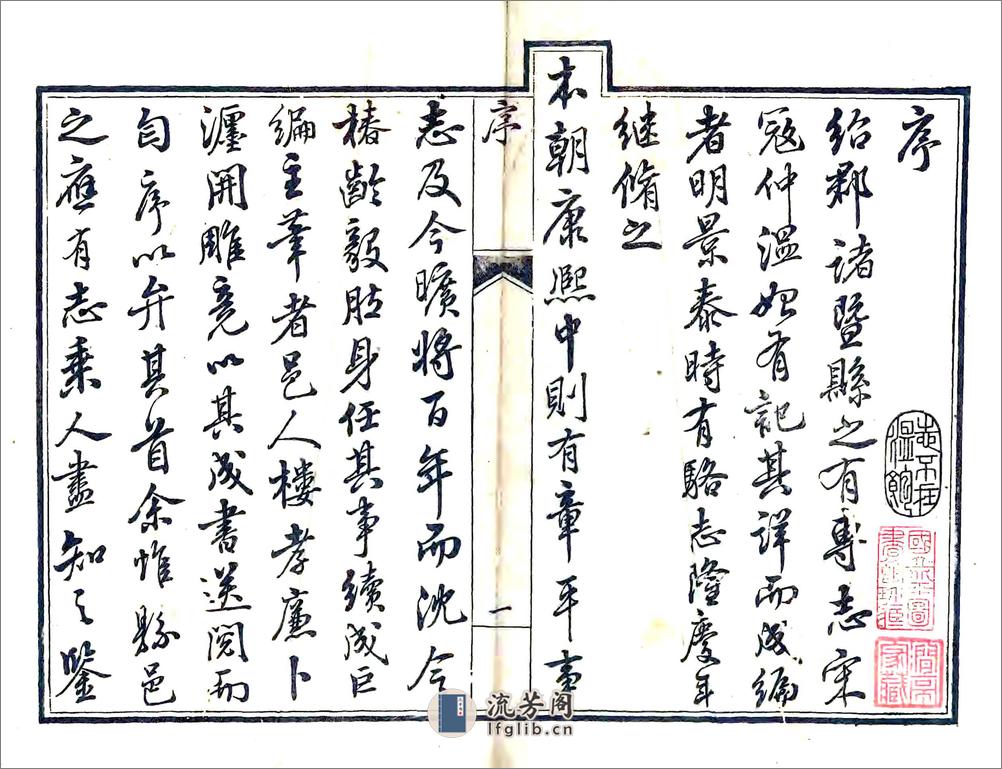 序
紹郡諸暨縣之有專志宋
寇仲溫始有記其詳而成編
者明景泰時有駱志隆慶年
继脩之
本朝康熙中則有章平事
志及今曠將百年而沈令
椿齡毅肰身任其事續成巨
编主筆者邑人樓孝廉卜
瀍開雕竟以其成書送閱而
匄序以弁其首余惟縣邑
之應有志乘人盡知之鑒
序
一
志不在溫飽
流芳阁
lfglib.cn